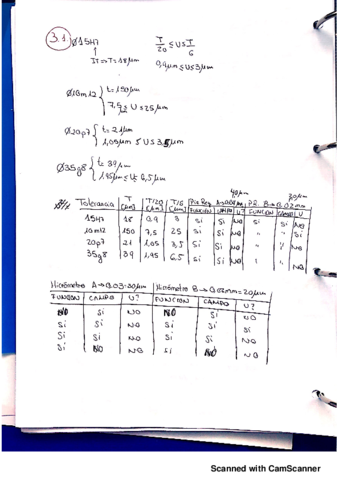 3.1.
Ø15H7
IT → T = 18 µm
T/20 ≤ U ≤ T/6
0,9 µm ≤ U ≤ 3 µm
Ø10m12 { t = 150 µm
7,5 ≤ U ≤ 25 µm
Ø20p7 { t = 21 µm
1,05 µm ≤ U ≤ 3,5 µm
Ø35g8 { t = 39 µm
1,95 µm ≤ U ≤ 6,5 µm
Tolerancia T [µm] T/20 [µm] T/6 [µm] FUNCIÓN CAMPO U? FUNCION CAMPO U
15H7 18 0,9 3 Si Si NO Si Si NO
10m12 150 7,5 25 Si Si NO " " Si
20p7 21 1,05 3,5 Si Si NO " " NO
35g8 39 1,95 6,5 Si Si NO " " NO
Micrómetro A → 0.03: 30 µm Micrómetro B → 0.02mm = 20 µm
FUNCION CAMPO U? FUNCION CAMPO U?
NO Si NO NO Si NO
Si Si NO Si Si Si
Si Si NO Si Si NO
Si NO NO Si NO NO
Scanned with CamScanner